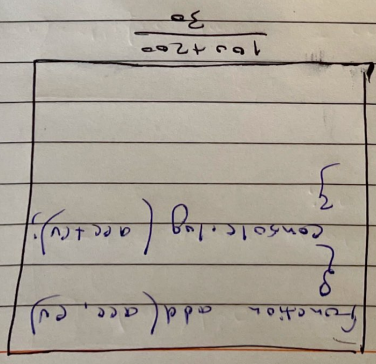 function add(acc, cv)
{
console.log (acc+cv);
}
100 +200
30